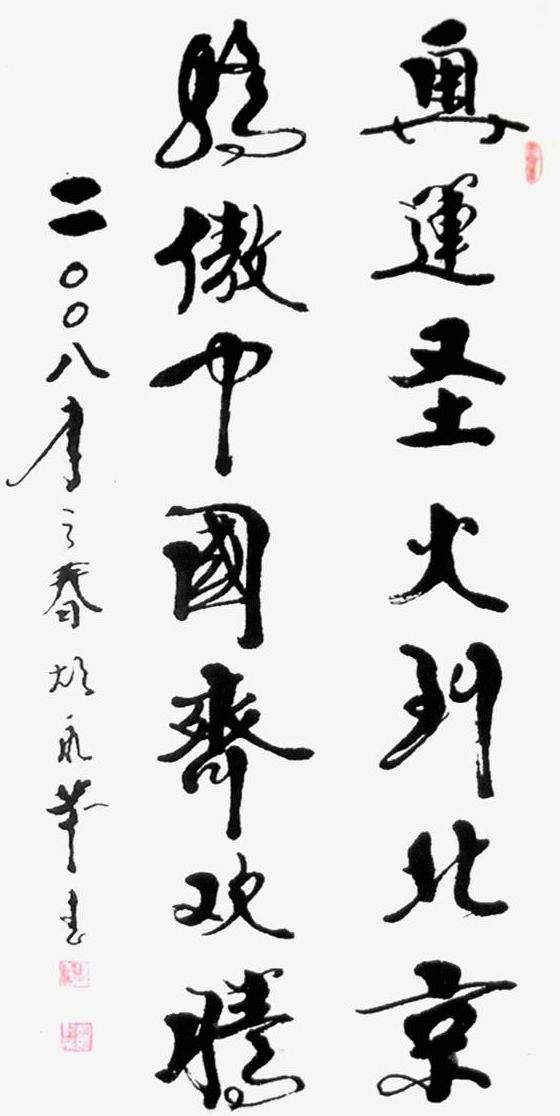 奥運圣火到北京
驕傲中國齊欢騰
二〇〇八年之春胡永華书